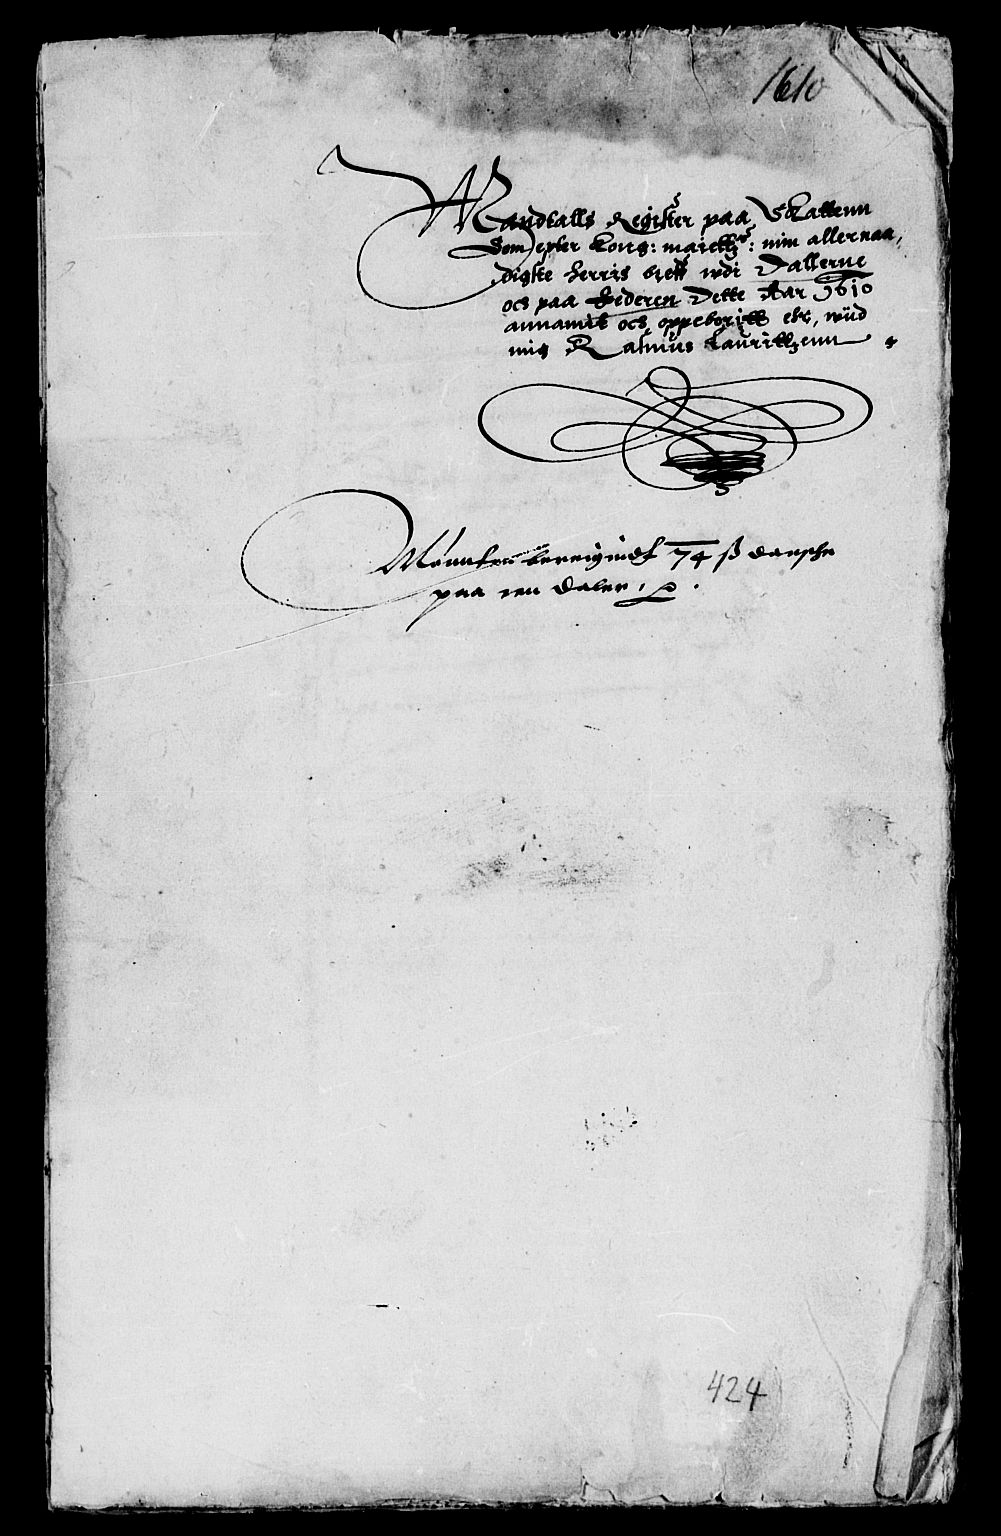 1610
Mandtalls Register paa Skattenn
Som epter Kong: maiettz: min allernaa,
digste herris breff udi Dallerne
och paa Hederen Dette Aar 1610
annamit och oppeborit er, wed
mig Rasmus Lauritzenn
Mønnten beregnidt 74 ß danske
paa en daler
424